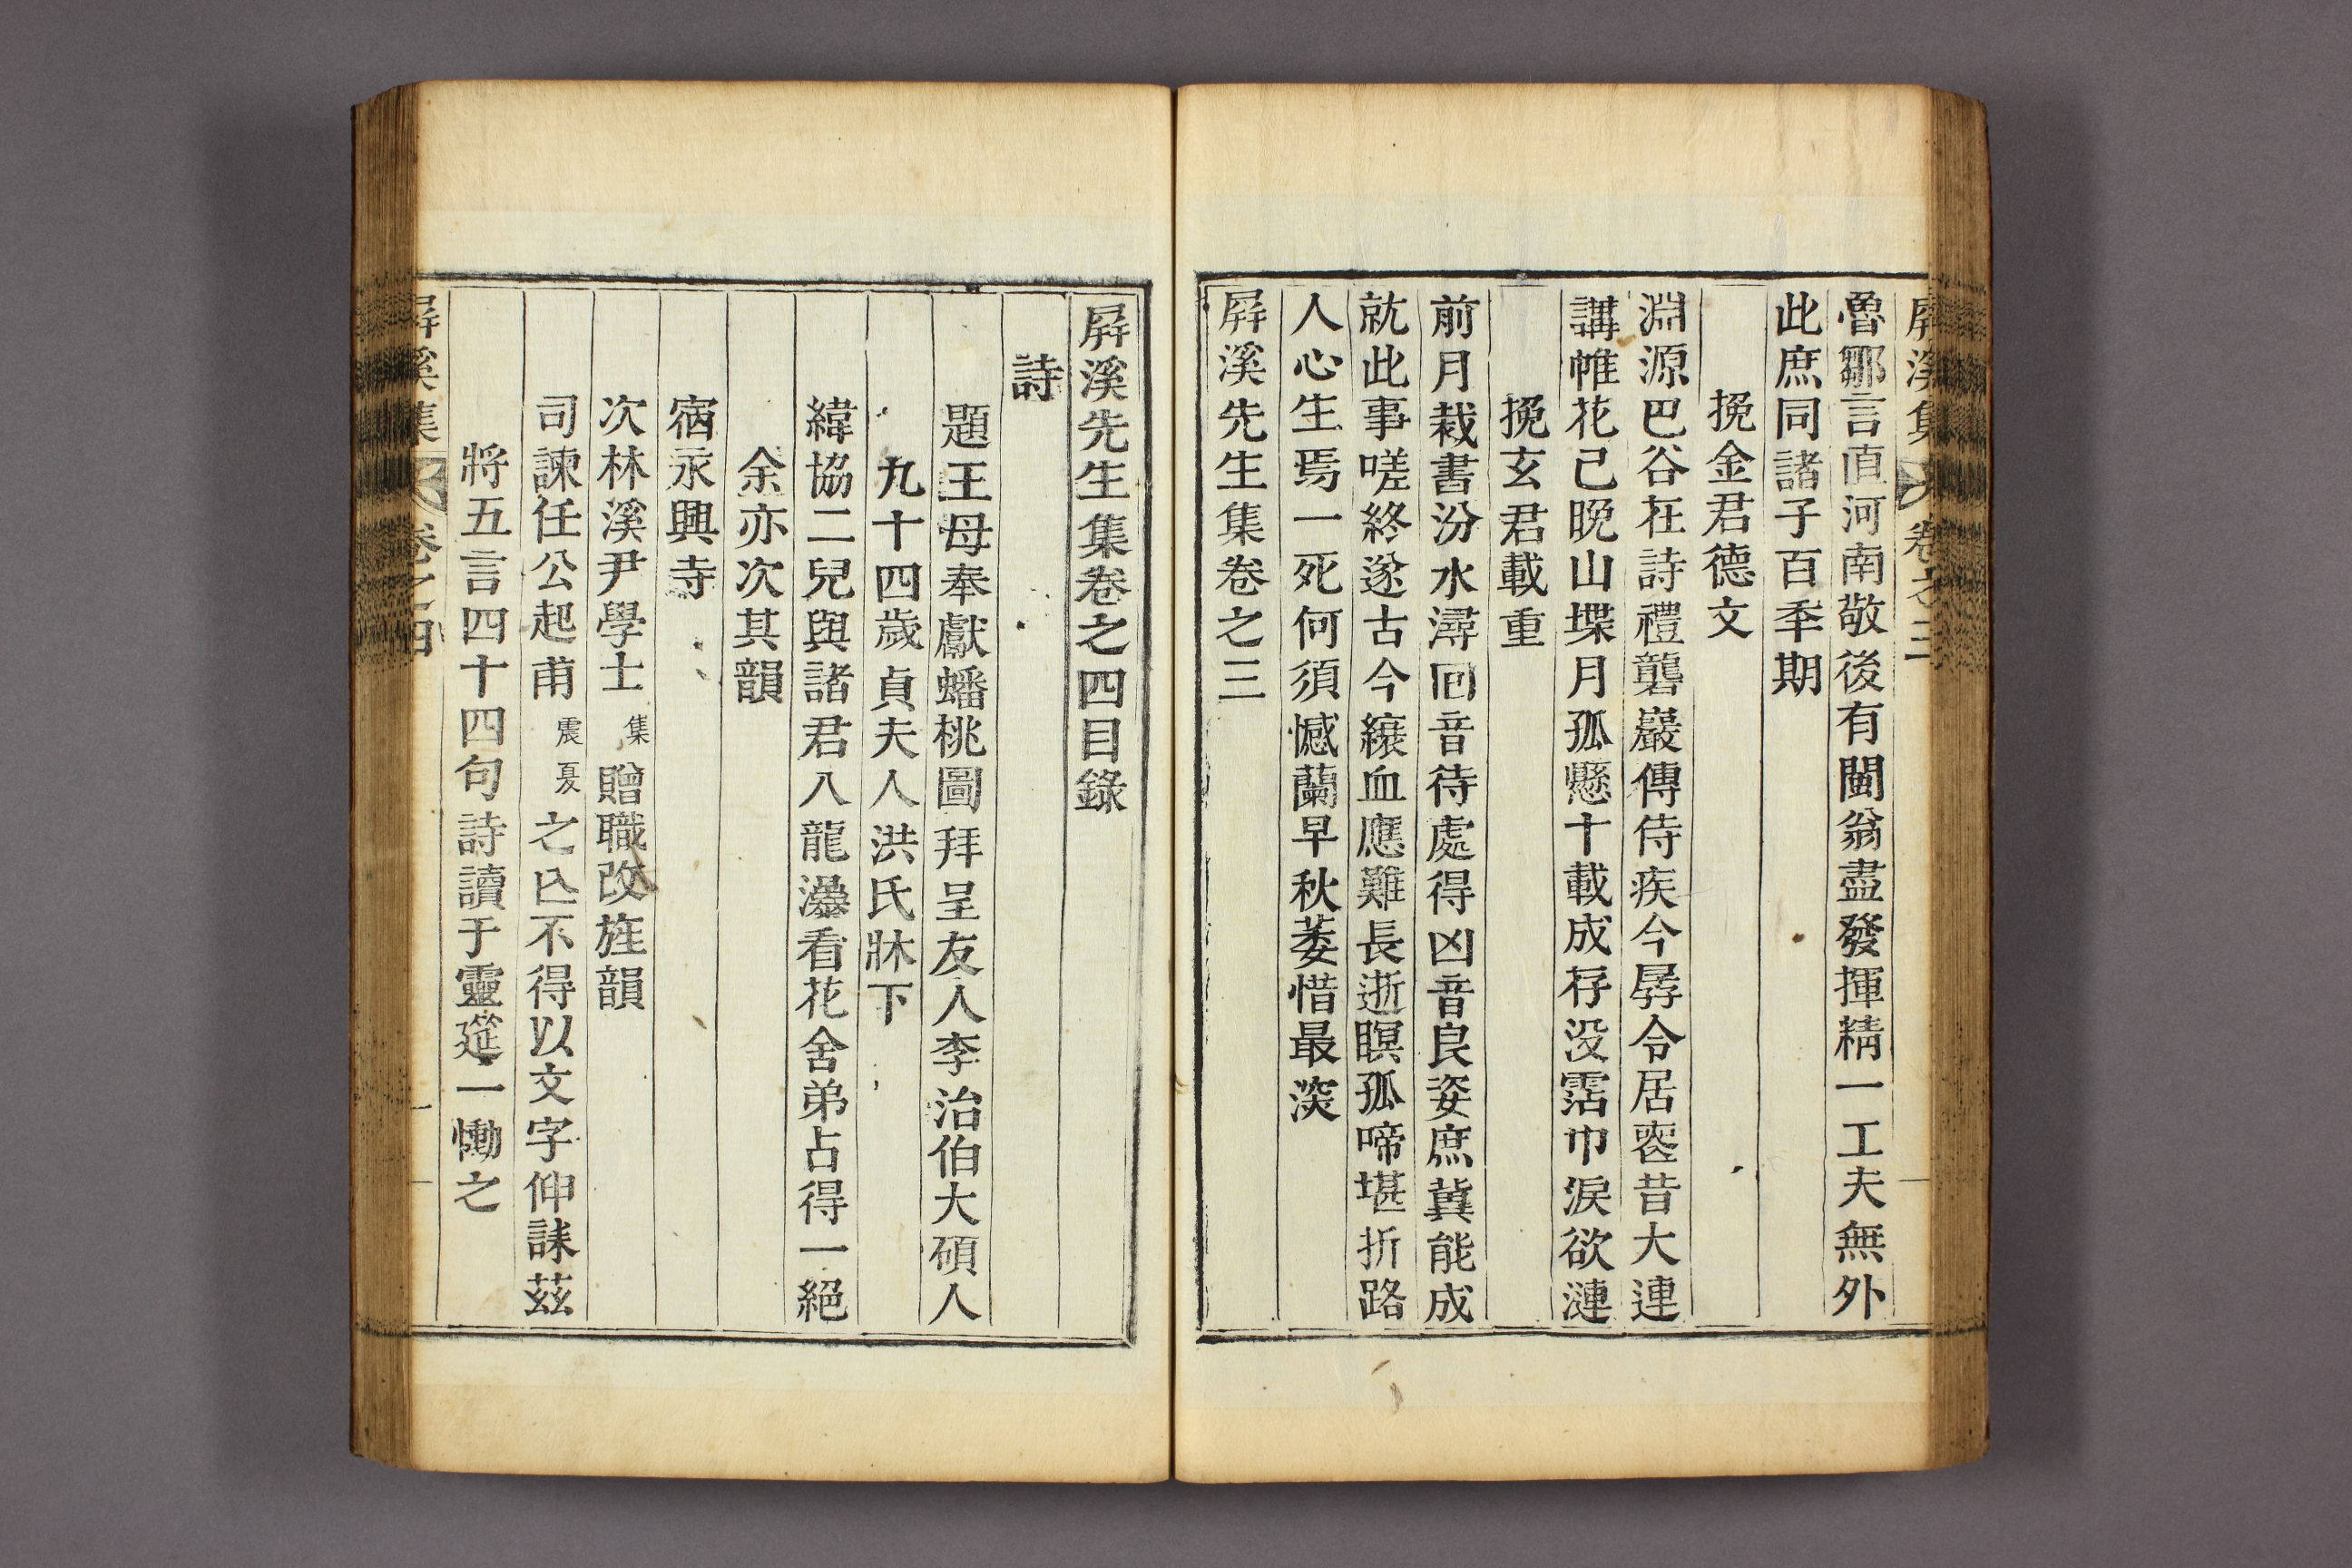 屛溪集 卷之三
魯鄒言直河南敬後有閩翁盡發揮精一工夫無外
此庶同諸子百秊期
挽金君德文
淵源巴谷在詩禮龔巖傳侍疾今孱令居䘮昔大連
講帷花已晩山堞月孤懸十載成存没霑巾淚欲漣
挽玄君載重
前月裁書汾水潯回音待處得凶音良姿庶冀能成
就此事嗟終邃古今縗血應難長逝瞑孤啼堪折路
人心生焉一死何須憾蘭早秋萎惜最深
屛溪先生集卷之三
屛溪先生集卷之四目錄
詩
題王母奉獻蟠桃圖拜呈友人李治伯大碩人
九十四歲貞夫人洪氏牀下
緯協二兒與諸君八龍瀑看花舍弟占得一絕
余亦次其韻
宿永興寺
次林溪尹學士集贈職改旌韻
司諫任公起甫震夏之亾不得以文字仰誄茲
將五言四十四句詩讀于靈筵一慟之
屛溪集 卷之四